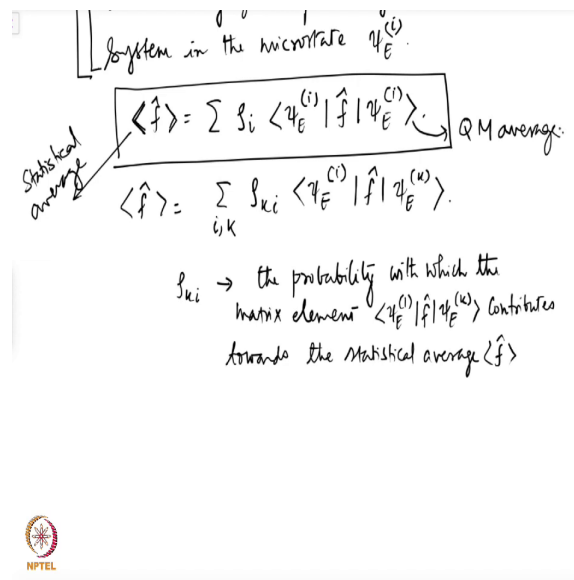 System in the microstate ψ_E^(i).
<f̂> = Σ ρ_i <ψ_E^(i)|f̂|ψ_E^(i)>. QM average.
Statistical average
<f̂> = Σ_{i,k} ρ_ki <ψ_E^(i)|f̂|ψ_E^(k)>.
ρ_ki → the probability with which the
matrix element <ψ_E^(i)|f̂|ψ_E^(k)> Contributes
towards the statistical average <f̂>
NPTEL